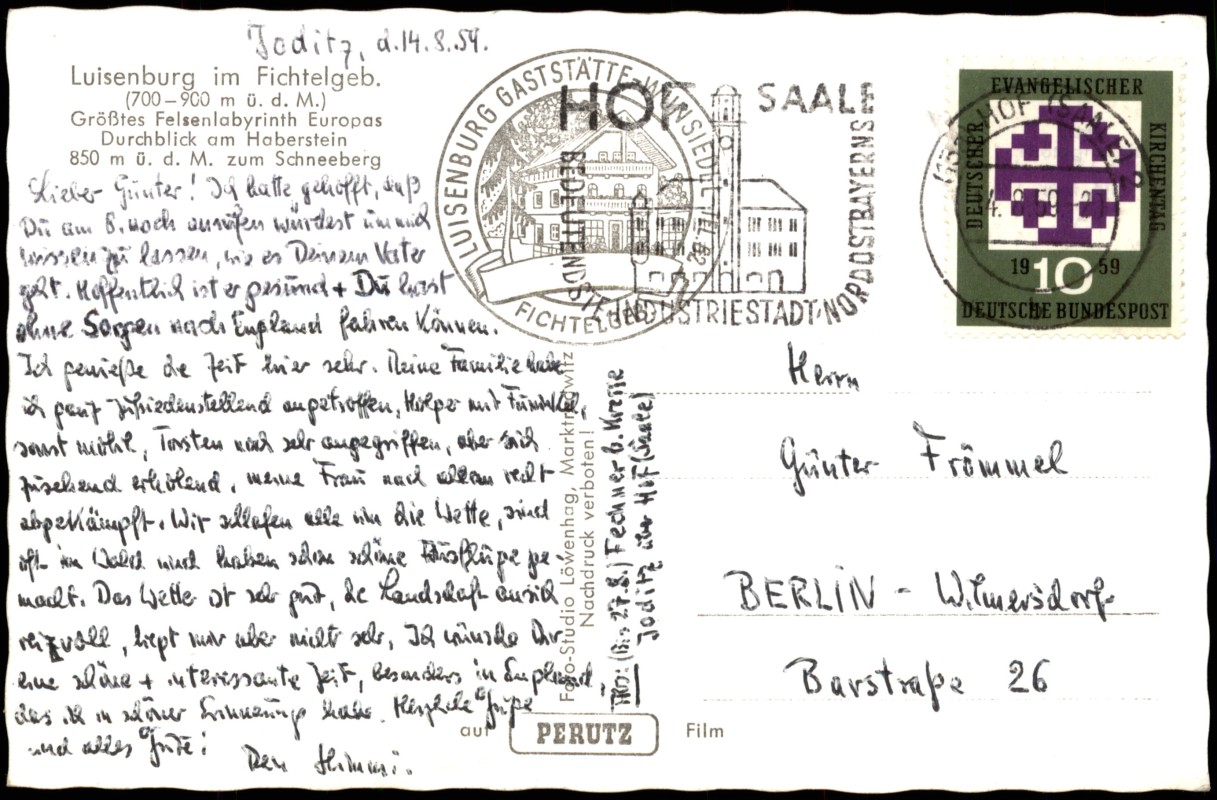 Joditz, d. 14.8.59.
Luisenburg im Fichtelgeb.
(700–900 m ü. d. M.)
Größtes Felsenlabyrinth Europas
Durchblick am Haberstein
850 m ü. d. M. zum Schneeberg
Lieber Günter! Ich hatte gehofft, daß
Du am 8. noch anrufen würdest um mich
wissen zu lassen, wie es Deinem Vater
geht. Hoffentlich ist er gesund + Du hast
ohne Sorgen nach England fahren können.
Ich genieße die Zeit hier sehr. Meine Familie habe
ich ganz zufriedenstellend angetroffen, Holger mit Furunkel,
sonst wohl, Torsten noch sehr angegriffen, aber sich
zusehend erholend, meine Frau nach allem recht
abgekämpft. Wir schlafen alle um die Wette, sind
oft im Wald und haben schon schöne Ausflüge ge-
macht. Das Wetter ist sehr gut, die Landschaft an sich
reizvoll, liegt mir aber nicht sehr. Ich wünsche Dir
eine schöne + interessante Zeit, besonders in England,
das ich in schöner Erinnerung habe. Herzliche Grüße
und alles Gute!
Dein
LUISENBURG GASTSTÄTTE-WUNSIEDEL TEL.
FICHTELGEB
HOF SAALE
BEDEUTENDSTE INDUSTRIESTADT NORDOSTBAYERNS
HOF (SAALE)
59
EVANGELISCHER
DEUTSCHER
KIRCHENTAG
19 10 59
DEUTSCHE BUNDESPOST
Foto-Studio Löwenhag, Marktredwitz
Nachdruck verboten!
(Bis 27.8.) Fechner b. Kruse
Joditz über Hof (Saale)
Herrn
Günter Frömmel
BERLIN - Wilmersdorf
Barstraße 26
auf PERUTZ Film